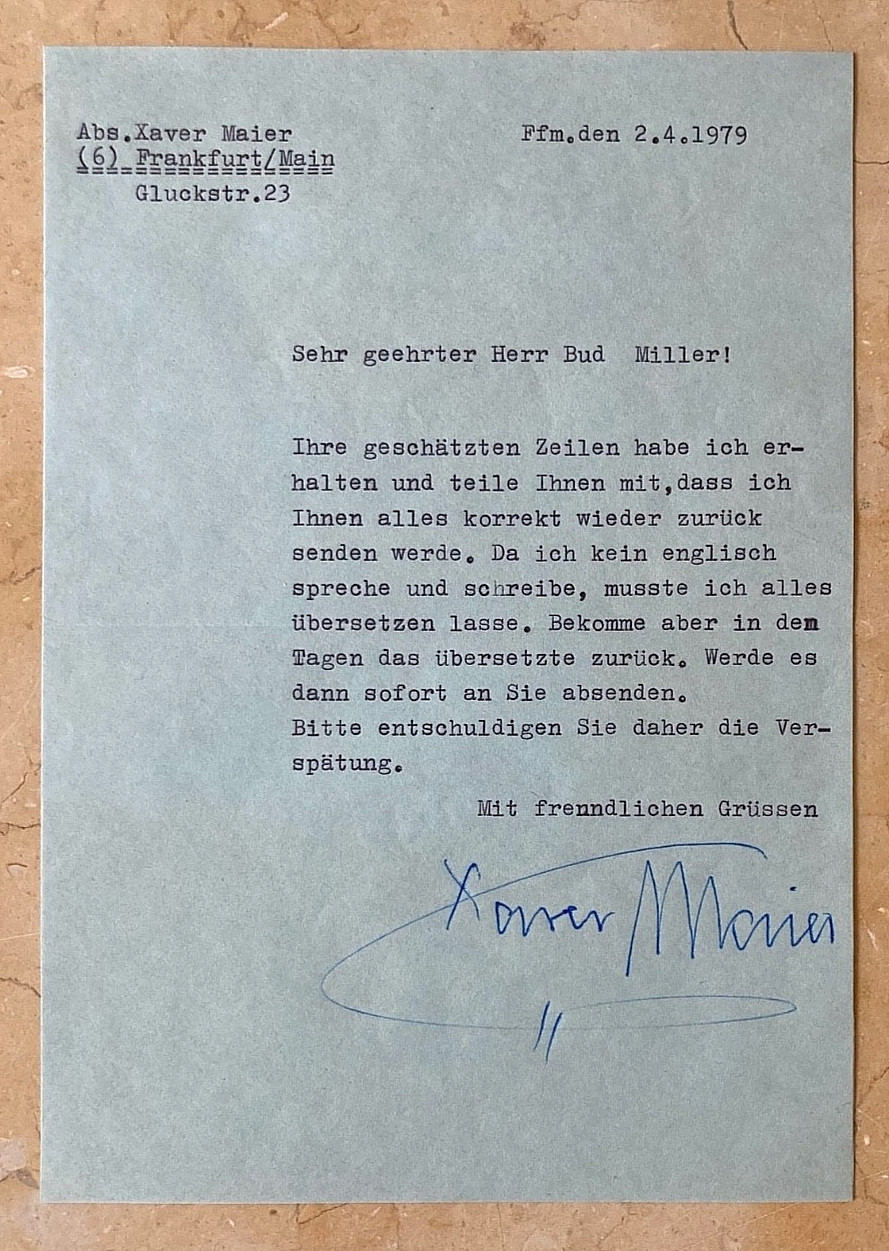 Abs.Xaver Maier
Ffm.den 2.4.1979
(6) Frankfurt/Main
Gluckstr.23
Sehr geehrter Herr Bud  Miller!
Ihre geschätzten Zeilen habe ich er-
halten und teile Ihnen mit,dass ich
Ihnen alles korrekt wieder zurück
senden werde. Da ich kein englisch
spreche und schreibe, musste ich alles
übersetzen lasse. Bekomme aber in den
Tagen das übersetzte zurück. Werde es
dann sofort an Sie absenden.
Bitte entschuldigen Sie daher die Ver-
spätung.
Mit frenndlichen Grüssen
Xaver Maier